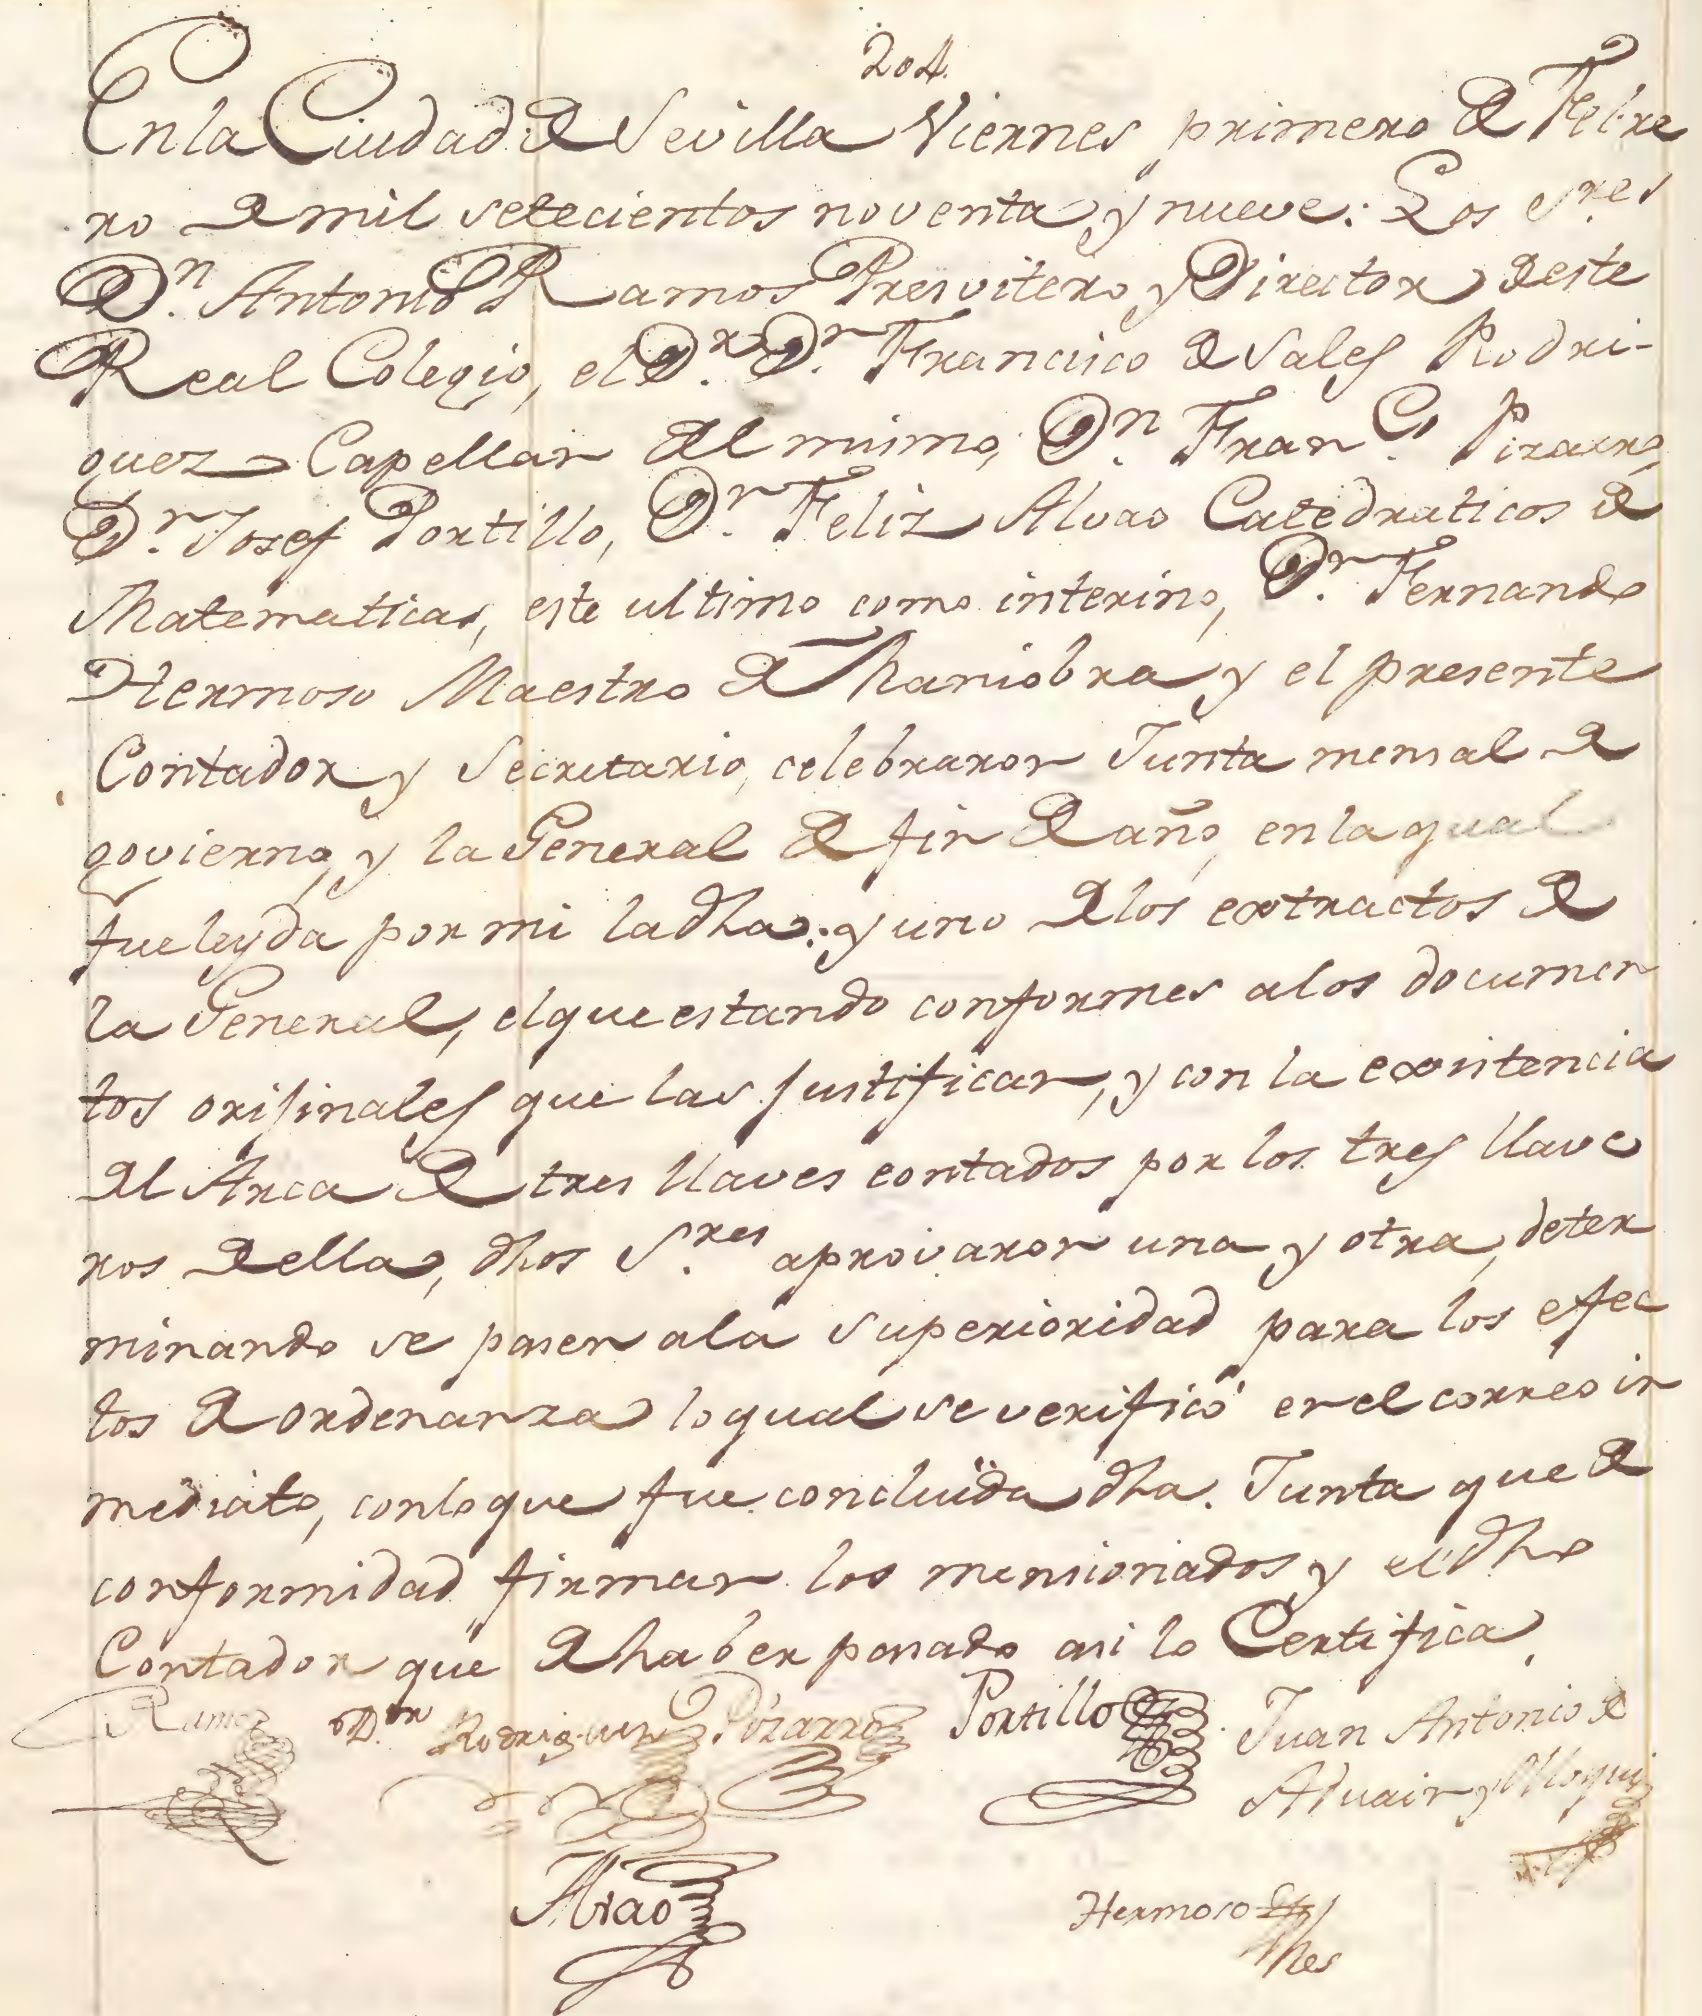 204.
En la Ciudad de Sevilla Viernes primero de Febre
ro de mil setecientos noventa y nueve: Los S.res
D.n Antonio Ramos Presvitero y Director deste
Real Colegio, el D.r D.n Francisco de Sales Rodri-
guez Capellan del mismo, D.n Fran.co Pizarro,
D.n Josef Portillo, D.n Feliz Alvao Catedraticos de
Matematicas, este ultimo como interino, D.n Fernando
Hermoso Maestro de Maniobra y el presente
Contador y Secretario, celebraron Junta mensal de
govierno, y la General de fin de año, en la qual
fue leyda por mi la dha. y uno de los extractos de
la General, el que estando conformes a los documen
tos orijinales que las justifican, y con la existencia
del Arca de tres llaves contados por los tres llave
ros de ella, dhos S.res aprovaron una y otra, deter
minando se pasen a la superioridad para los efec
tos de ordenanza lo qual se verificó en el correo in
mediato, con lo que fue concluida dha. Junta que de
conformidad firman los mensionados y el dho
Contador que de haber pasado asi lo Certifica.
Ramos D.or Rodriguez Pizarro Portillo Juan Antonio de
Alvao Hermoso